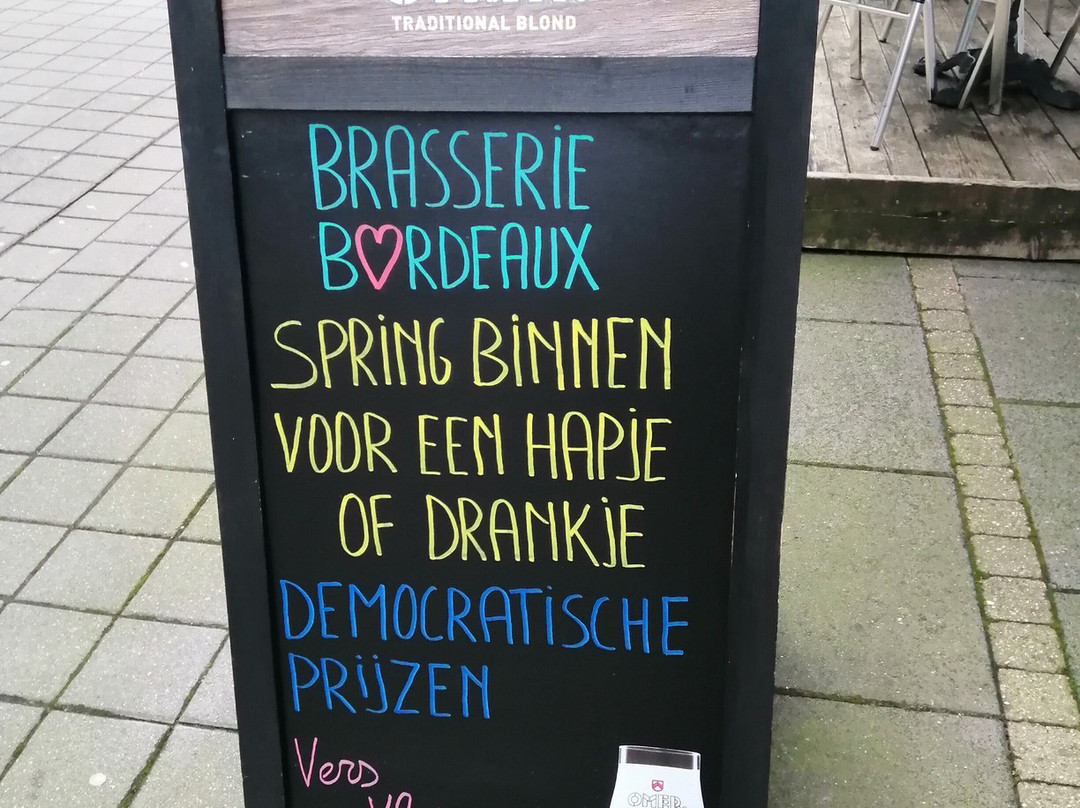 TRADITIONAL BLOND
BRASSERIE
B♡RDEAUX
SPRING BINNEN
VOOR EEN HAPJE
OF DRANKJE
DEMOCRATISCHE
PRIJZEN
Vers
OMER.